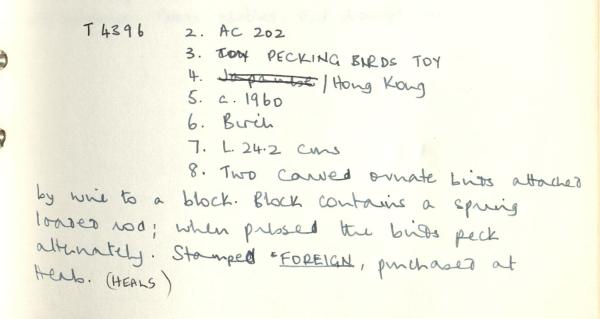 T 4396 2. AC 202
3. TOY PECKING BIRDS TOY
4. Japanese / Hong Kong
5. c. 1960
6. Birch
7. L. 24.2 cms
8. Two carved ornate birds attached
by wire to a block. Block contains a spring
loaded rod; when pressed the birds peck
alternately. Stamped "FOREIGN, purchased at
Heals. (HEALS)